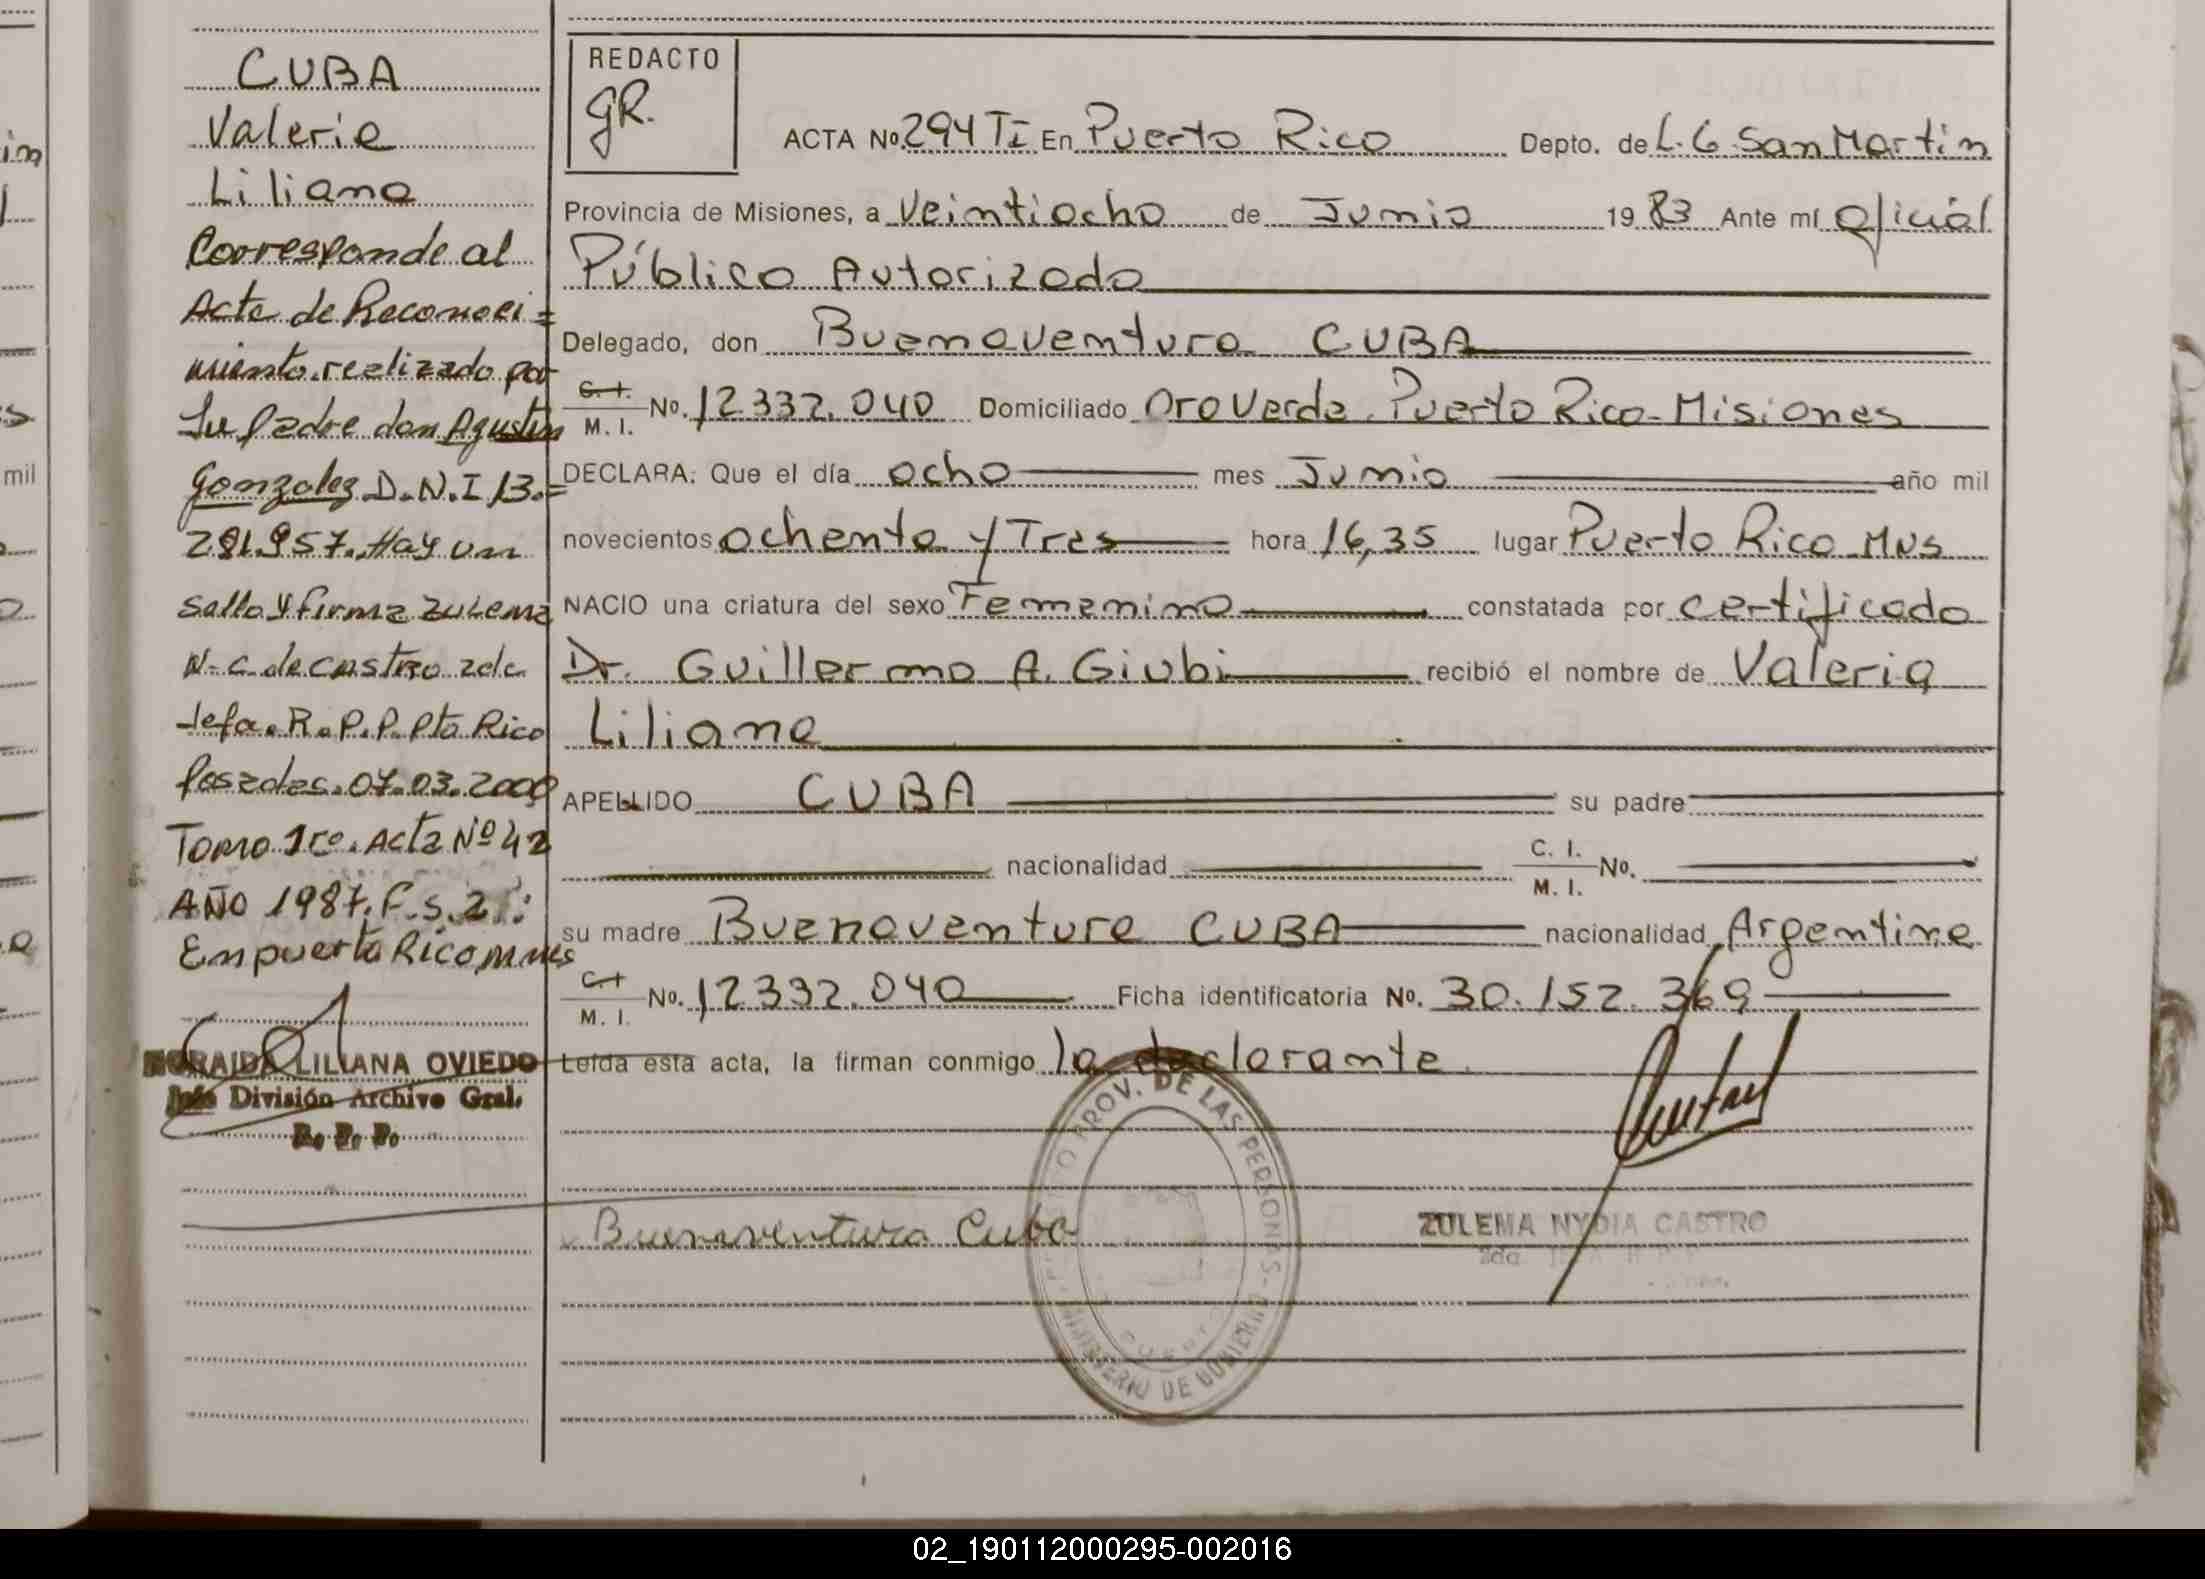 CUBA
Valeria
Liliana
Corresponde al
Acta de Reconoci=
miento realizado por
su padre don Agustin
Gonzalez D.N.I 13.=
281.957. Hay un
sello y firma Zulema
N. C. de Castro 2da
Jefa. R.P.P. Pto Rico
Posadas. 07.03.2000
Tomo 1ro. Acta Nº 42
AÑO 1987. F.S.2
En puerto Rico Mnes
LILIANA OVIEDO
Jefe División Archivo Gral.
R. P. P.
REDACTO
GR.
ACTA Nº 294 TI En Puerto Rico Depto. de L. G. San Martin
Provincia de Misiones, a Veintiocho de Junio 19 83 Ante mí Oficial
Público Autorizado
Delegado, don Buenaventura CUBA
C. I.
M. I. No. 12.332.040 Domiciliado Oro Verde. Puerto Rico-Misiones
DECLARA: Que el día ocho mes Junio año mil
novecientos ochenta y Tres hora 16,35 lugar Puerto Rico Mns
NACIO una criatura del sexo Femenino constatada por certificado
Dr. Guillermo A. Giubi recibió el nombre de Valeria
Liliana
APELLIDO CUBA su padre
nacionalidad C. I.
M. I. No.
su madre Buenaventura CUBA nacionalidad Argentina
C. I.
M. I. No. 12.332.040 Ficha identificatoria No. 30.152.369
Leída esta acta, la firman conmigo la declarante.
PROV. DE LAS PERSONAS
MINISTERIO DE GOBIERNO
Buenaventura Cuba
ZULEMA NYDIA CASTRO
2da.
02_190112000295-002016